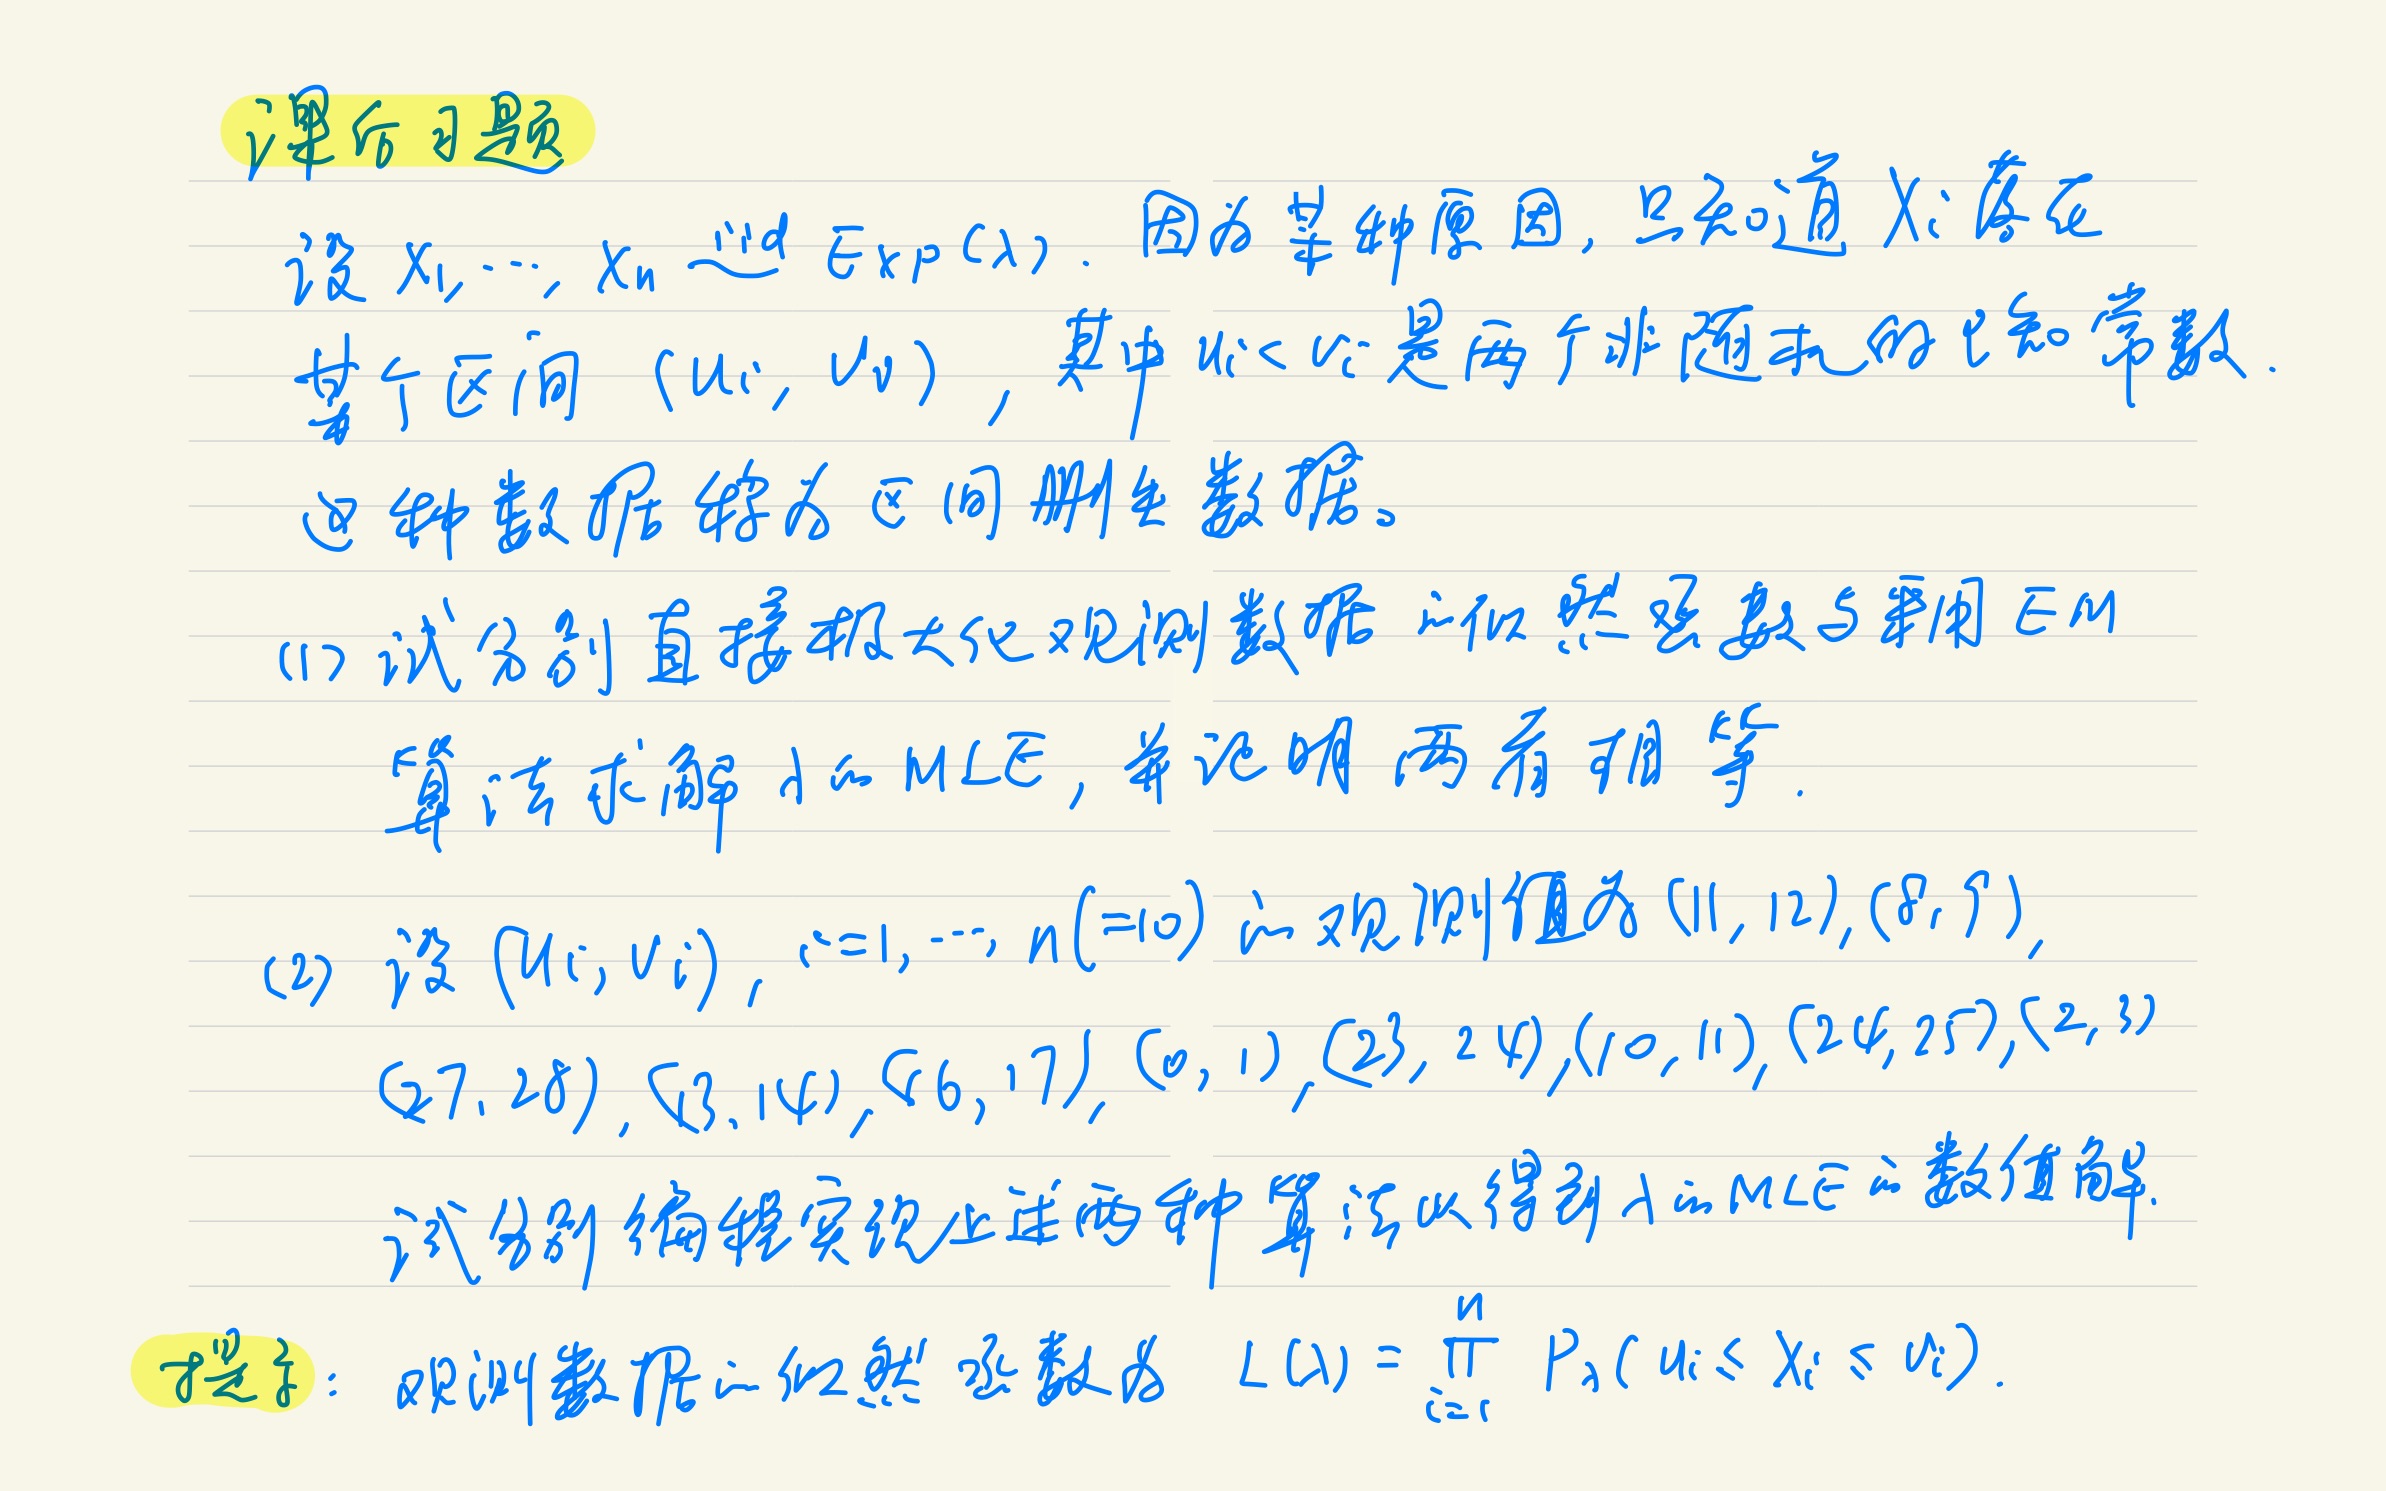 课后习题
设 X₁, ⋯, Xₙ ~iid Exp(λ). 因为某种原因, 只知道 Xᵢ 落在
某个区间 (uᵢ, vᵢ), 其中 uᵢ < vᵢ 是两个非随机的已知常数.
这种数据称为区间删失数据。
(1) 试分别直接极大化观测数据的似然函数与采用 EM
算法求解 λ 的 MLE, 并证明两者相等.
(2) 设 (uᵢ, vᵢ), i=1, ⋯, n(=10) 的观测值为 (11, 12), (8, 9),
(27, 28), (13, 14), (16, 17), (0, 1), (23, 24), (10, 11), (24, 25), (2, 3)
试分别编程实现以上两种算法以得到 λ 的 MLE 的数值解.
提示: 观测数据的似然函数为 L(λ) = ∏ᵢ₌₁ⁿ P_λ(uᵢ ≤ Xᵢ ≤ vᵢ).